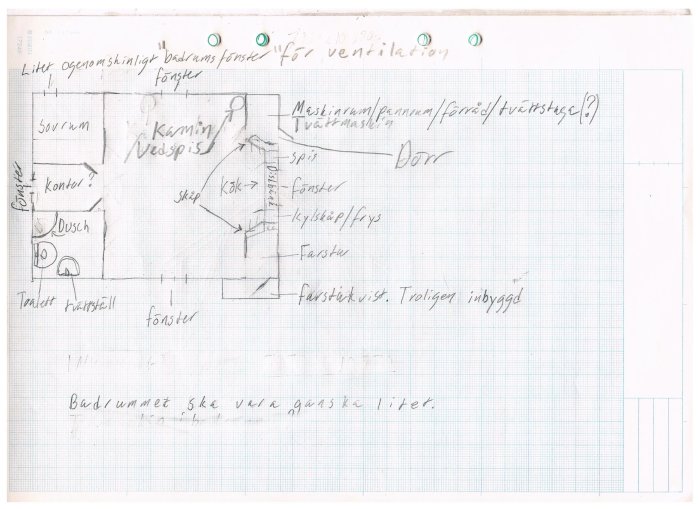 Litet ogenomskinligt badrumsfönster "för ventilation"
fönster
Maskinrum/pannrum/förråd/tvättstuga(?)
Tvättmaskin
Sovrum
Kamin/
Vedspis
Dörr
spis
fönster
Kontor?
skåp
Kök
Diskbänk
fönster
kylskåp/frys
Dusch
Farstu
Toalett
tvättställ
fönster
farstukvist. Troligen inbyggd
Badrummet ska vara ganska litet.